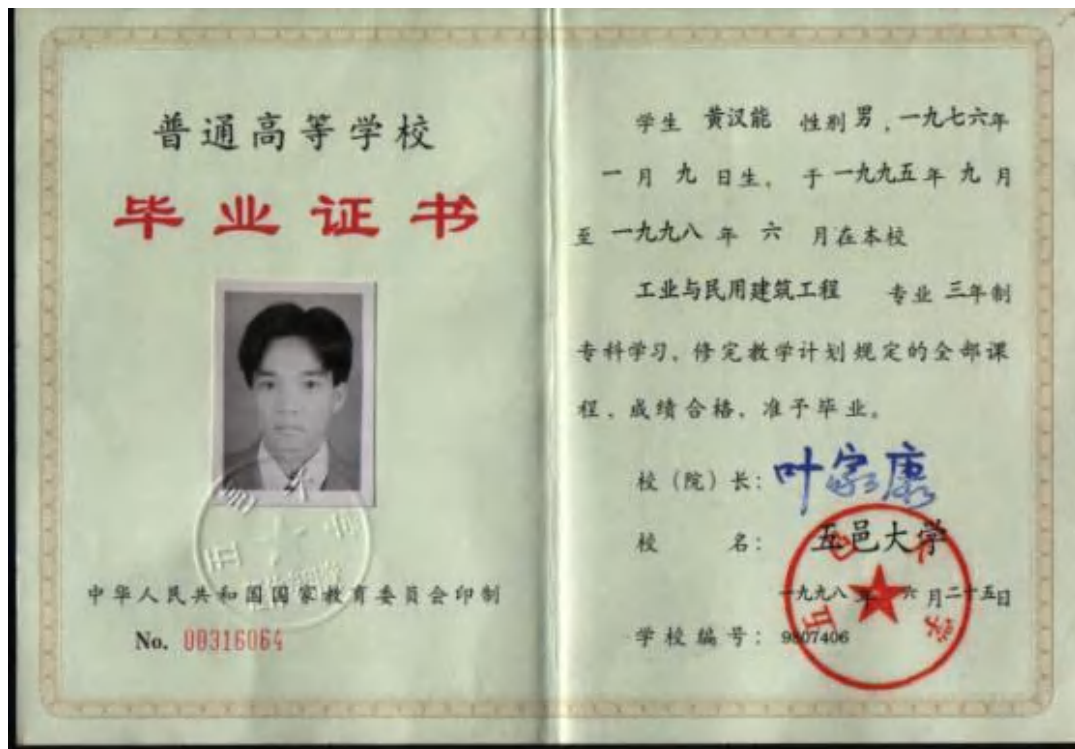 普通高等学校
毕业证书
中华人民共和国国家教育委员会印制
No. 00316064
学生 黄汉能 性别 男，一九七六年
一月 九 日生，于一九九五年 九 月
至 一九九八 年 六 月在本校
工业与民用建筑工程 专业 三年制
专科学习，修完教学计划规定的全部课
程，成绩合格，准予毕业。
校（院）长：叶家康
校 名：五邑大学
一九九八年 六 月二十五日
学校编号：9807406
五邑大学